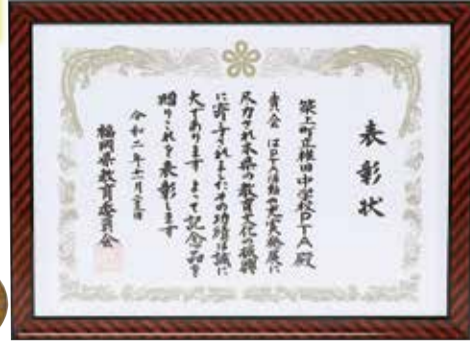 表彰状
築上町立椎田中学校PTA殿
貴会はPTA活動の充実発展に
尽力され本県の教育文化の振興
に寄与されましたその功績は誠に
大であります よって記念品を
贈りこれを表彰します
令和二年十一月
福岡県教育委員会